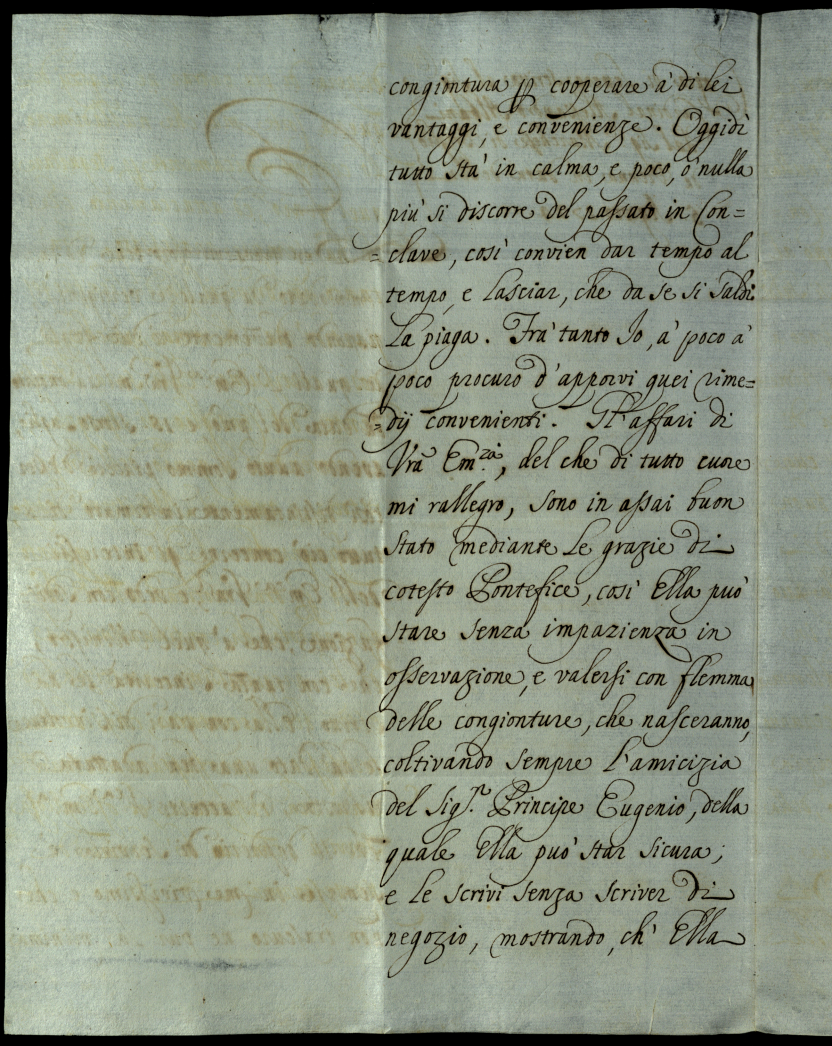 congiontura ꝑ cooperare à di lei
vantaggi, e convenienze. Oggidì
tutto stà in calma, e poco, ò nulla
più si discorre del passato in Con=
=clave, così convien dar tempo al
tempo, e lasciar, che da se si saldi
la piaga. Frà tanto Io, à poco à
poco procuro d'apporvi quei rime=
=dij convenienti. Gl'affari di
Vrã Em.za, del che di tutto cuore
mi rallegro, sono in assai buon
stato mediante le grazie di
cotesto Pontefice, così Ella può
stare senza impazienza in
osservazione, e valersi con flemma
delle congionture, che nasceranno,
coltivando sempre l'amicizia
del Sig.r Principe Eugenio, della
quale Ella può star sicura;
e le scrivi senza scriver di
negozio, mostrando, ch'Ella